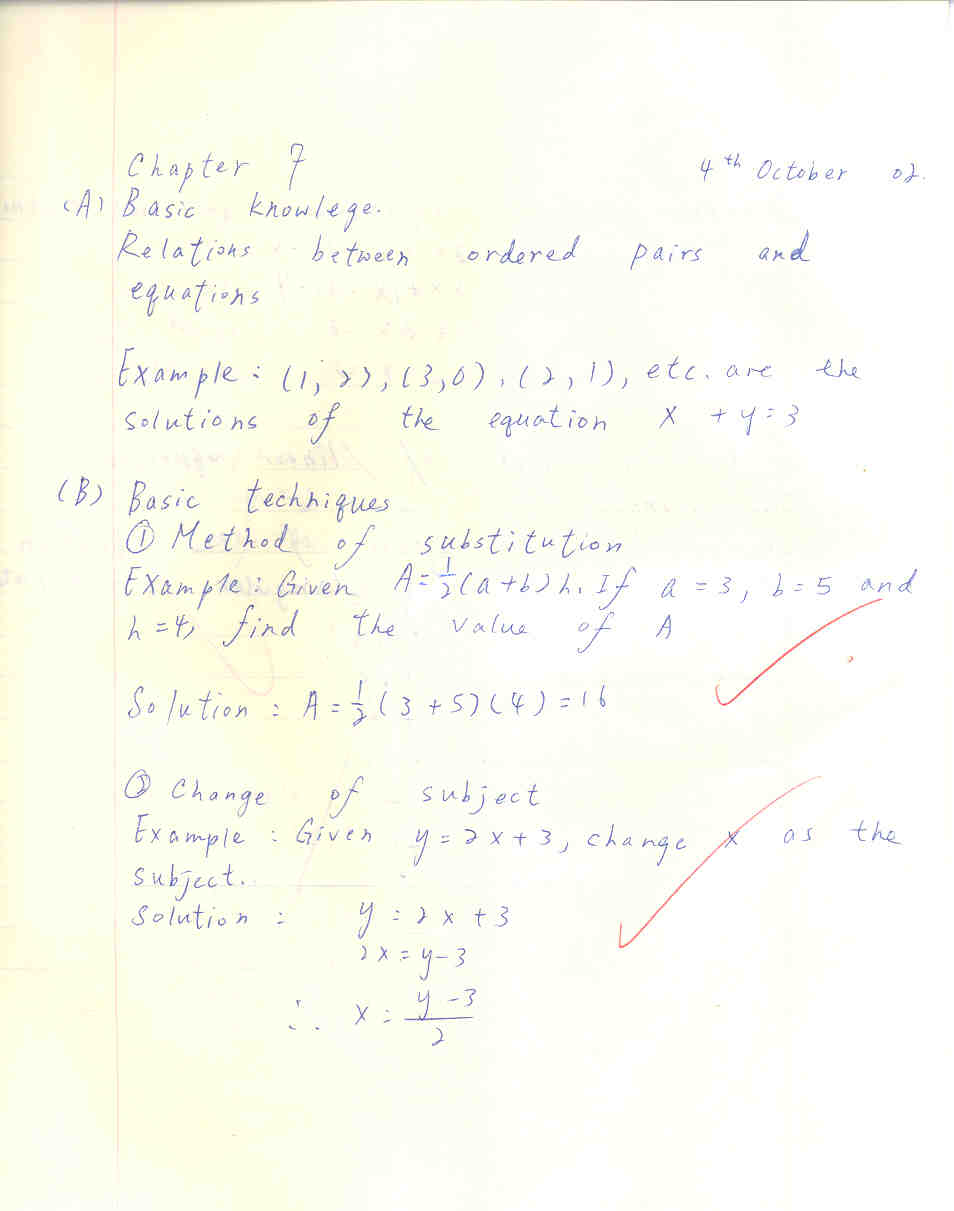 Chapter 7 4th October 02.
(A) Basic knowlege.
Relations between ordered pairs and
equations
Example : (1, 2), (3,0), (2, 1), etc. are the
solutions of the equation x + y = 3
(B) Basic techniques
① Method of substitution
Example : Given A = 1/2 (a+b)h. If a = 3, b = 5 and
h = 4, find the value of A
Solution : A = 1/2 (3 + 5)(4) = 16
② Change of subject
Example : Given y = 2x + 3, change x as the
subject.
Solution : y = 2x + 3
2x = y - 3
∴ x = (y - 3)/2